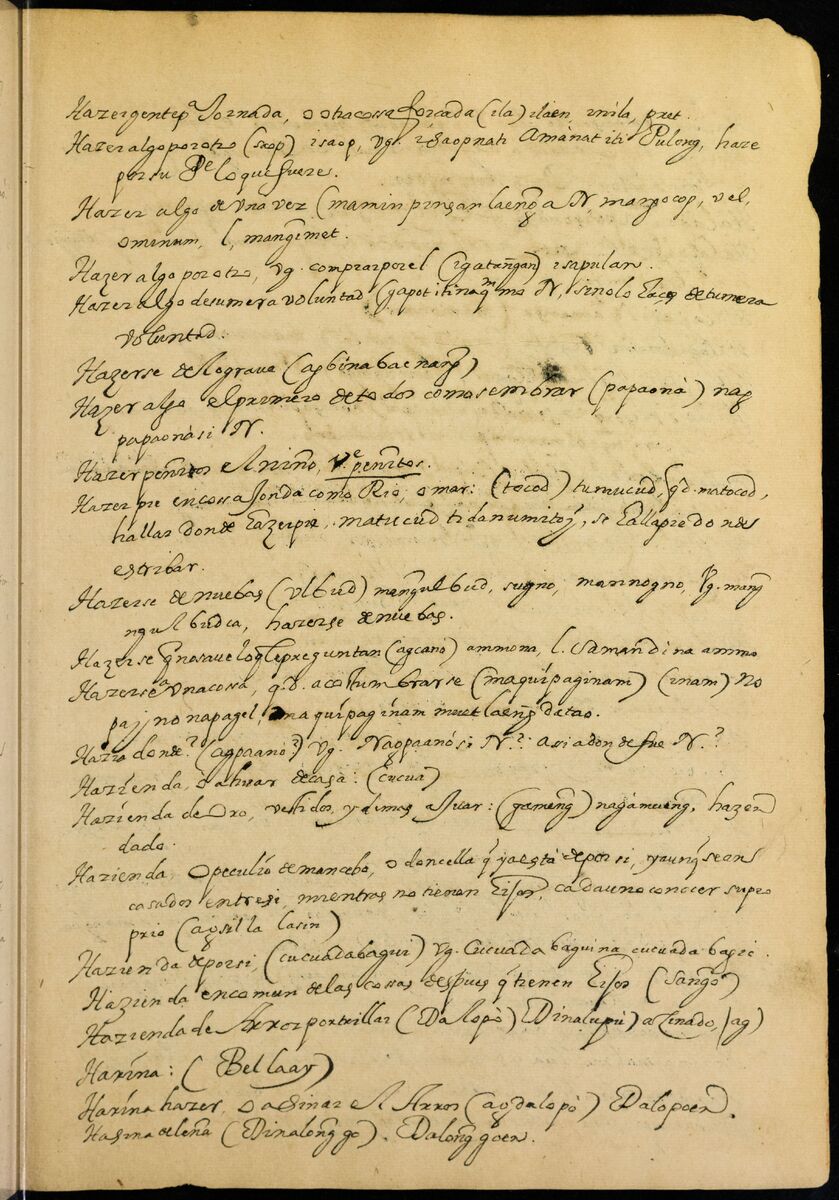 Hazer gente pª Jornada, o otra cossa forçada (ila) ilaen, inila, pret.
Hazer algo por otro (saop) isaop, vg. isaopnati Amànat iti Pulong, haze
por su Pe lo que fuere.
Hazer algo de una vez (mamin pinsan laeng a N, , vel,
ominum, l, mangimet.
Hazer algo por otro, vg. comprar por el (igatañgan) isapular.
Hazer algo de su mera voluntad (gapot iti naqm mo N, sino lo haces de tu mera
voluntad.
Hazerse de Rograva (agbinabaenang)
Hazer algo el primero de todos como sembrar (papaonà) nag
papaonàsi N.
Hazer peñitos el niño, Ve peñitos.
Hazer pie en cossa honda como Rio, o mar: (tocod) tumucud, qd. matocod,
hallar donde hazer pie. matucud ti danum itoy, se halla pie donde
estribar.
Hazerse de nuebas (ulbud) mangulbud, sugno, mannogno, Vg. mang
ngulbudca, hazerse de nuebas.
Hazerse q no save lo q le preguntan (agcano) ammona, l. samandi na ammo
Hazerse a una cossa, q.d. acostumbrarse (maquipaginam) (inam) No
pajno napagel, maquipaginam met laeng datao.
Hazia donde? (agpaano?) vg. Nagpaanósi N? asia donde fue N.?
Hazienda, o alhuar de casa: (cucua)
Hazienda de Oro, vestidos, y demas aJuar: (gameng) nagàmeng, hazen
dado.
Hazienda, O peculio de mancebo, o doncella q ya està de por si, y aunq sean
casados entre si, mientras no tienen hijos, cada uno conocer su pro
prio (agsilla lasin)
Hazienda de por si, (cucuadabagui) vg. Cucuada baguina cucuada bagic.
Hazienda en comun de las cossas despues q tienen hijos (Sangò)
Hazienda de Arroz por trillar (Dalopò) Dinalupù) aZinado, (ag)
Harina: (Bellaay)
Harina hazer, o asinar el Arros (agdalopò) Dalopoen.
Hasina de leña (Dinalonggo). Dalonggoen.